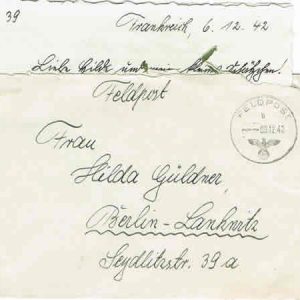 39
Frankreich, 6.12.42
Liebe Hilde und mein kleines
Feldpost
FELDPOST
Frau
Hilda Güldner,
Berlin-Lankwitz
Seydlitzstr. 39a